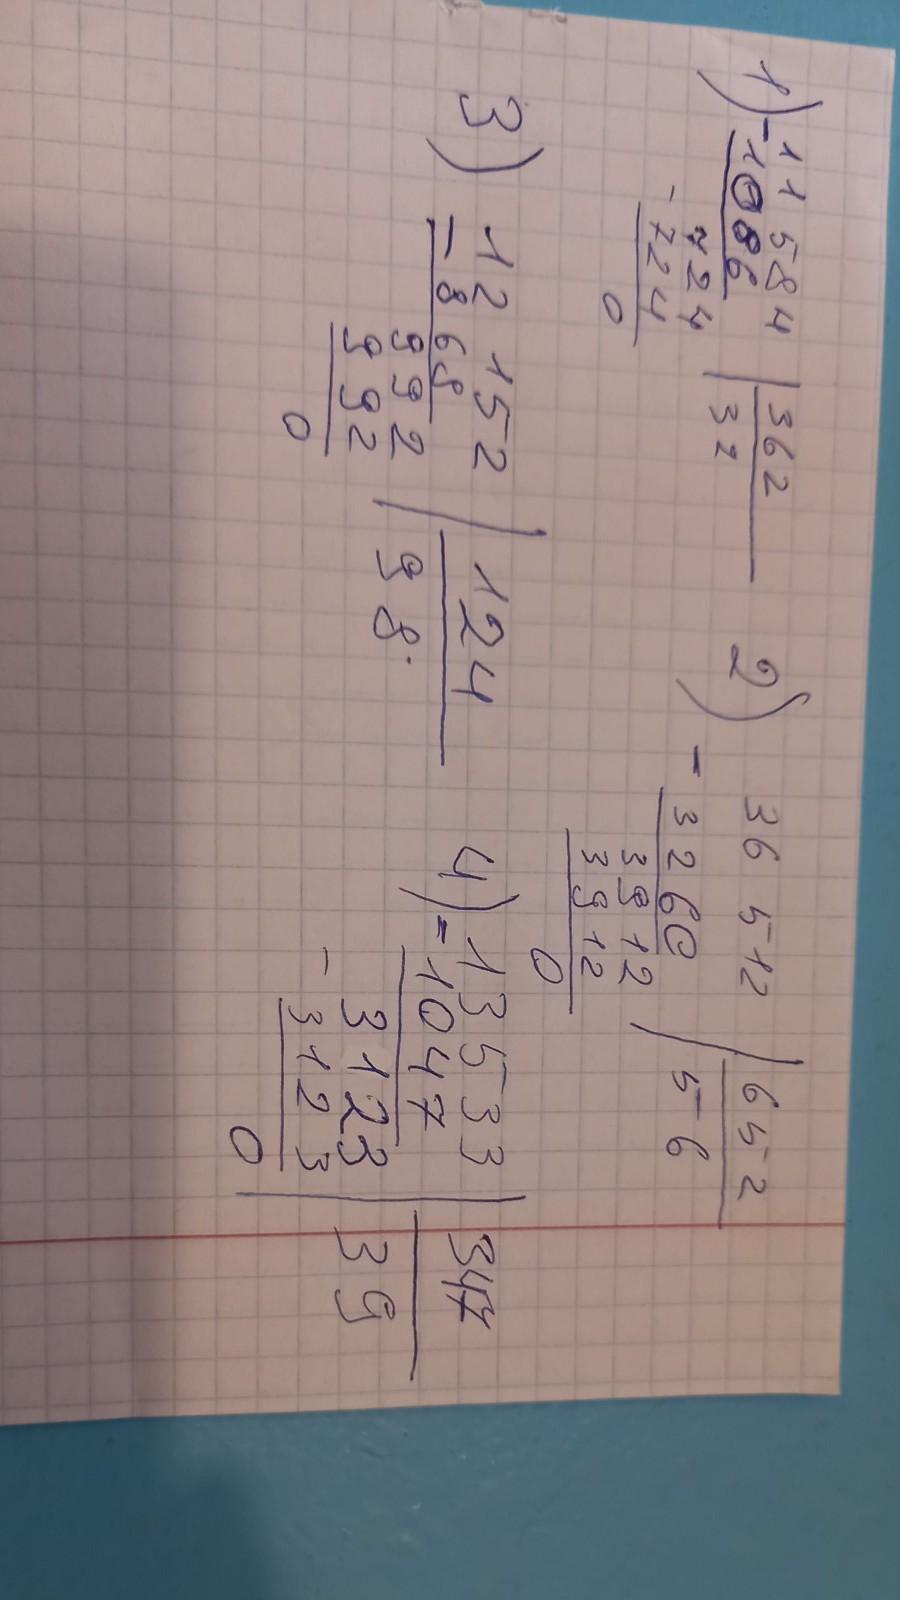 1) 11 584 | 362
- 1086 32
724
- 724
0
2) 36 512 | 652
- 3260 56
3912
3912
0
3) 12 152 | 124
- 868 98
992
992
0
4) 13533 | 347
- 1047 39
3123
- 3123
0